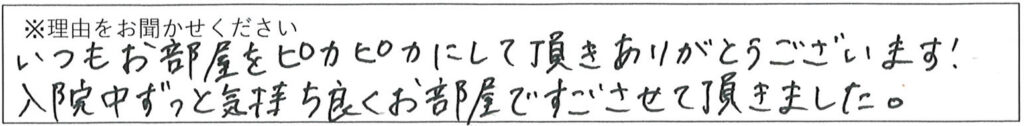 ※理由をお聞かせください
いつもお部屋をピカピカにして頂きありがとうございます!
入院中ずっと気持ち良くお部屋ですごさせて頂きました。